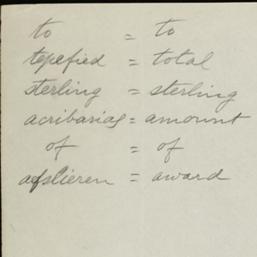 to = to
tepefied = total
sterling = sterling
acribarias = amount
of = of
afslieren = award